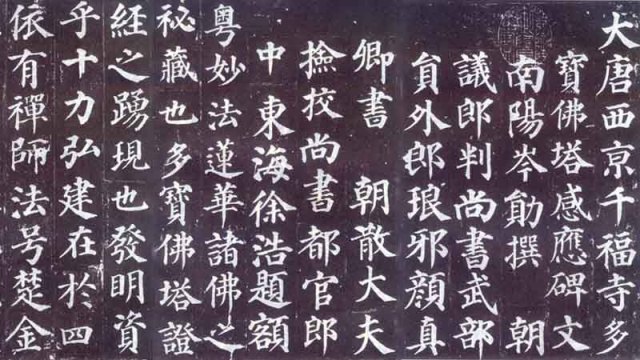 大唐西亰千福寺多
寶佛塔感應碑文
南陽岑勛撰 朝
議郎判尚書武部
貟外郎琅邪顔真
卿書 朝散大夫
撿挍尚書都官郎
中 東海徐浩題額
粵妙法蓮華諸佛之
祕藏也多寶佛塔證
經之踴現也發明資
乎十力弘建在於四
依有禪師法号楚金